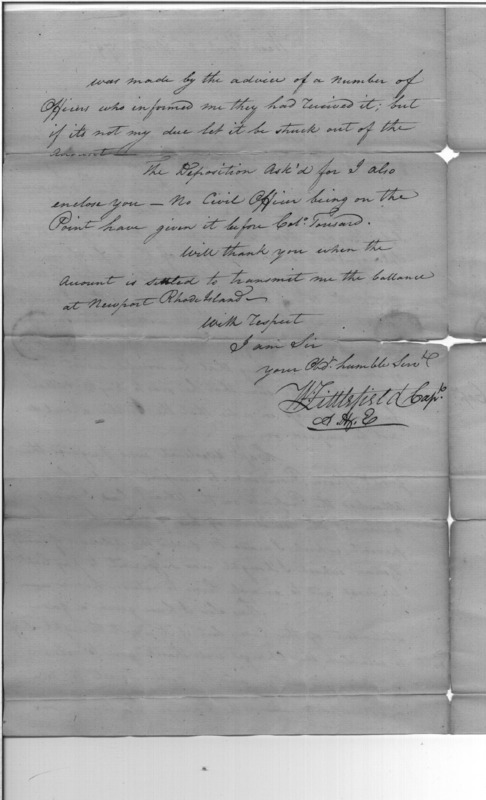 was made by the advice of a number of
Officers who informed me they had received it; but
if its not my due let it be struck out of the
Account —
The Deposition Ask'd for I also
enclose you — No Civil Officer being on the
Point have given it before Colo. Tousard.
Will thank you when the
Account is settled to transmit me the ballance
at Newport Rhode Island —
With respect
I am Sir
your Obdt. humble Servt.
W Littlefield Capt.